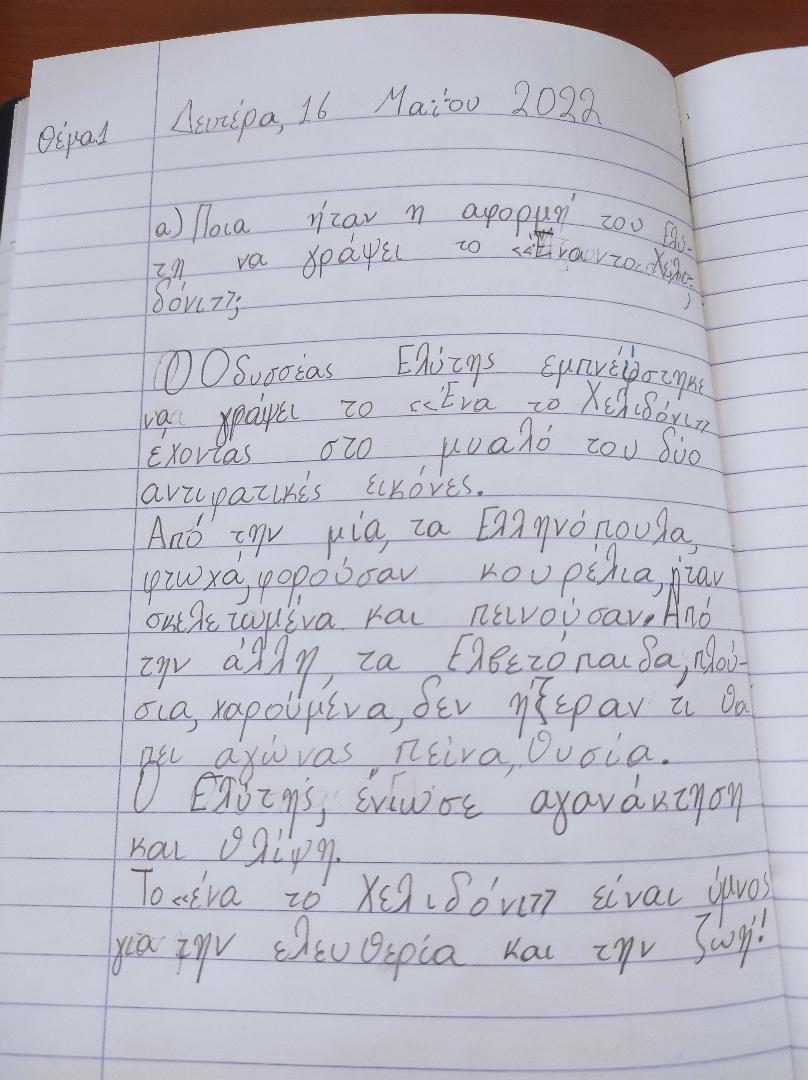 Θέμα1
Δευτέρα, 16 Μαΐου 2022
α) Ποια ήταν η αφορμή του Ελύ-
τη να γράψει το «Ένα το Χελι-
δόνι»;
Ο Οδυσσέας Ελύτης εμπνεύστηκε
να γράψει το «Ένα το Χελιδόνι»
έχοντας στο μυαλό του δύο
αντιφατικές εικόνες.
Από την μία, τα Ελληνόπουλα,
φτωχά, φορούσαν κουρέλια, ήταν
σκελετωμένα και πεινούσαν. Από
την άλλη, τα Ελβετόπαιδα, πλού-
σια, χαρούμενα, δεν ήξεραν τι θα
πει αγώνας, πείνα, θυσία.
Ο Ελύτης, ένιωσε αγανάκτηση
και θλίψη.
Το «ένα το Χελιδόνι» είναι ύμνος
για την ελευθερία και την ζωή!